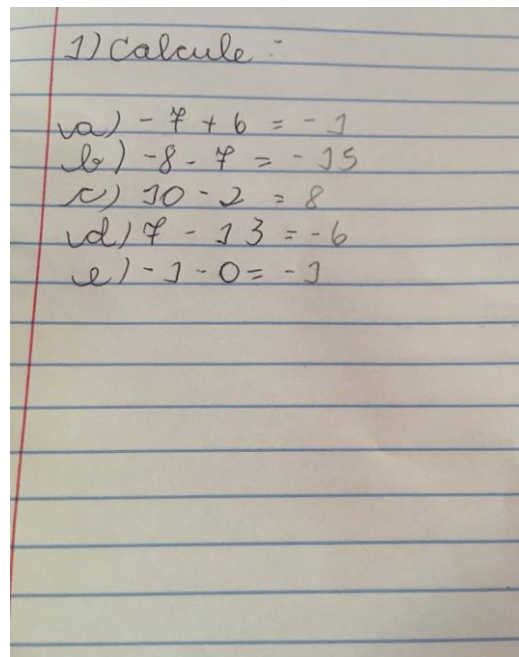 1) Calcule:
a) - 7 + 6 = - 1
b) -8 - 7 = - 15
c) 10 - 2 = 8
d) 7 - 13 = -6
e) - 1 - 0 = - 1